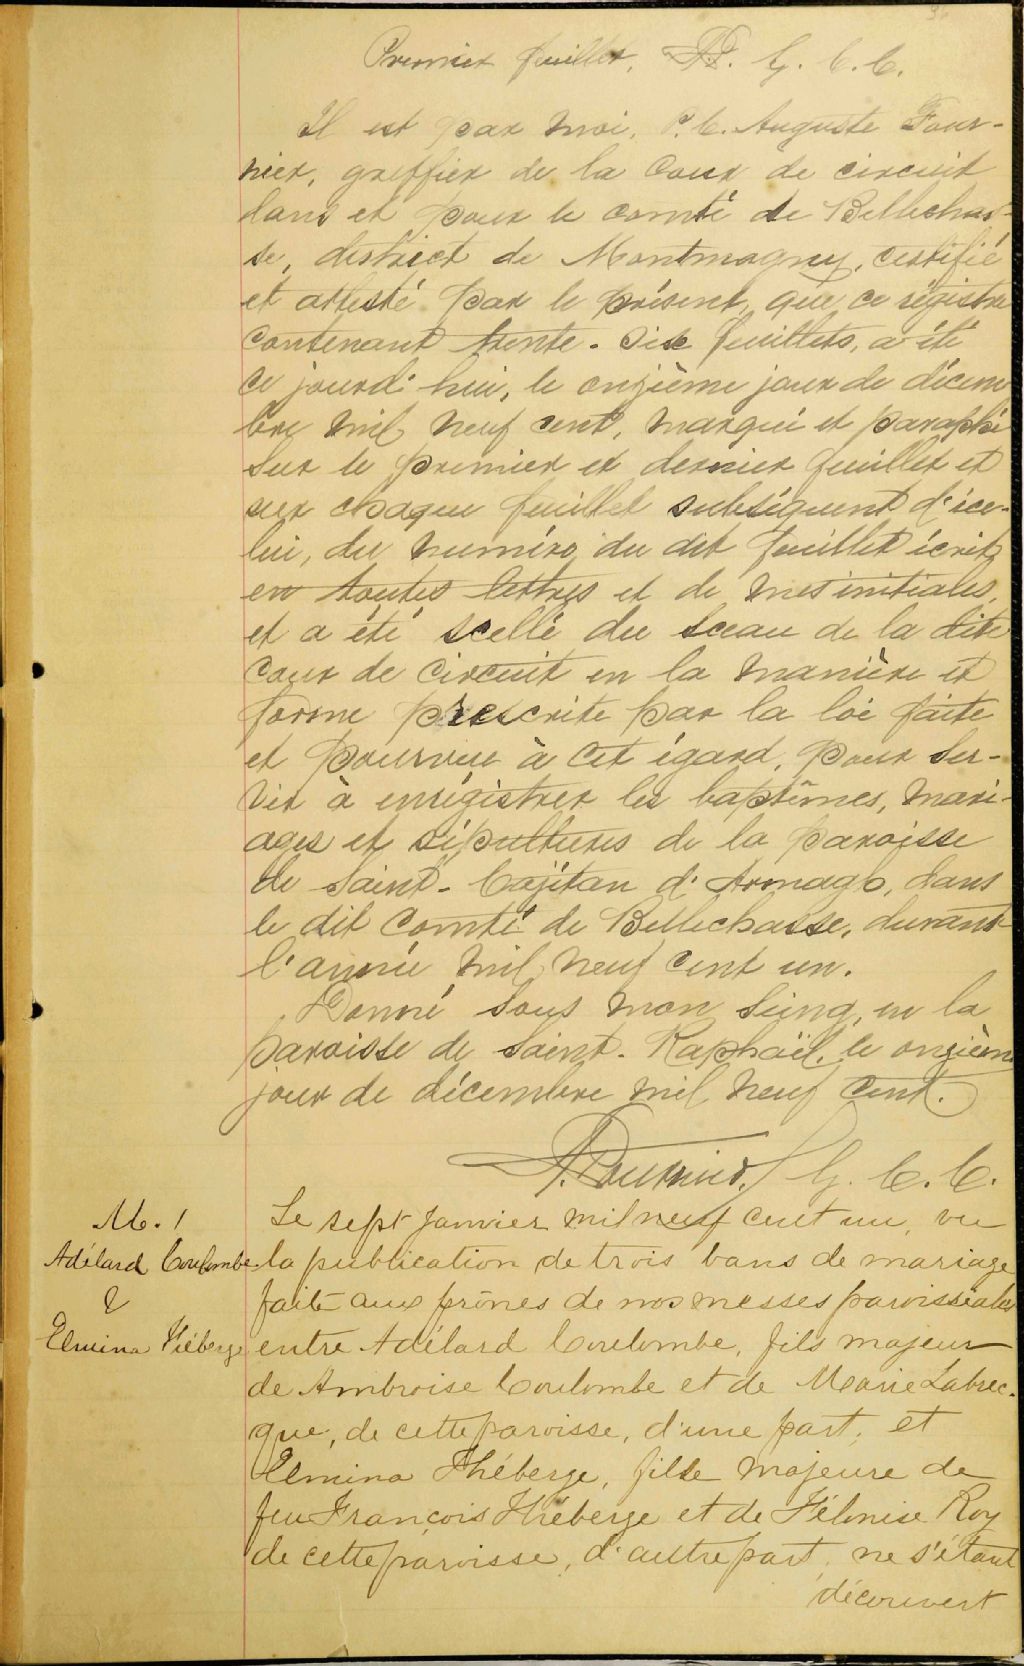 Premier feuillet, A.F. G. C. C.
Il est par moi, P. C. Auguste Four-
nier, greffier de la Cour de circuit
dans et pour le comté de Bellechas-
se, district de Montmagny, certifié
et attesté par le présent, que ce régistre
contenant trente-six feuillets, a été
ce jourd'hui, le onzième jour de décem
bre mil neuf cent, marqué et paraphé
sur le premier et dernier feuillet et
sur chaque feuillet subséquent d'ice-
lui, du numéro du dit feuillet écrit
en toutes lettres et de mes initiales,
et a été scellé du sceau de la dite
cour de circuit en la manière et
forme prescrite par la loi faite
et pourvue à cet égard, pour ser-
vir à enrégistrer les baptêmes, mari-
ages et sépultures de la paroisse
de Saint-Cajétan d'Armagh, dans
le dit Comté de Bellechasse, durant
l'année mil neuf cent un.
Donné sous mon seing, en la
paroisse de Saint-Raphaël, le onzièm
jour de décembre mil neuf cent.
A. Fournier, G. C. C.
M. 1
Adélard Coulombe
&
Elmina Théberge
Le sept janvier mil neuf cent un, vu
la publication de trois bans de mariage
faite aux prônes de nos messes paroissiales
entre Adélard Coulombe, fils majeur
de Ambroise Coulombe et de Marie Labrec-
que, de cette paroisse, d'une part, et
Elmina Théberge, fille majeure de
feu François Théberge et de Félonise Roy
de cette paroisse, d'autre part, ne s'étant
découvert